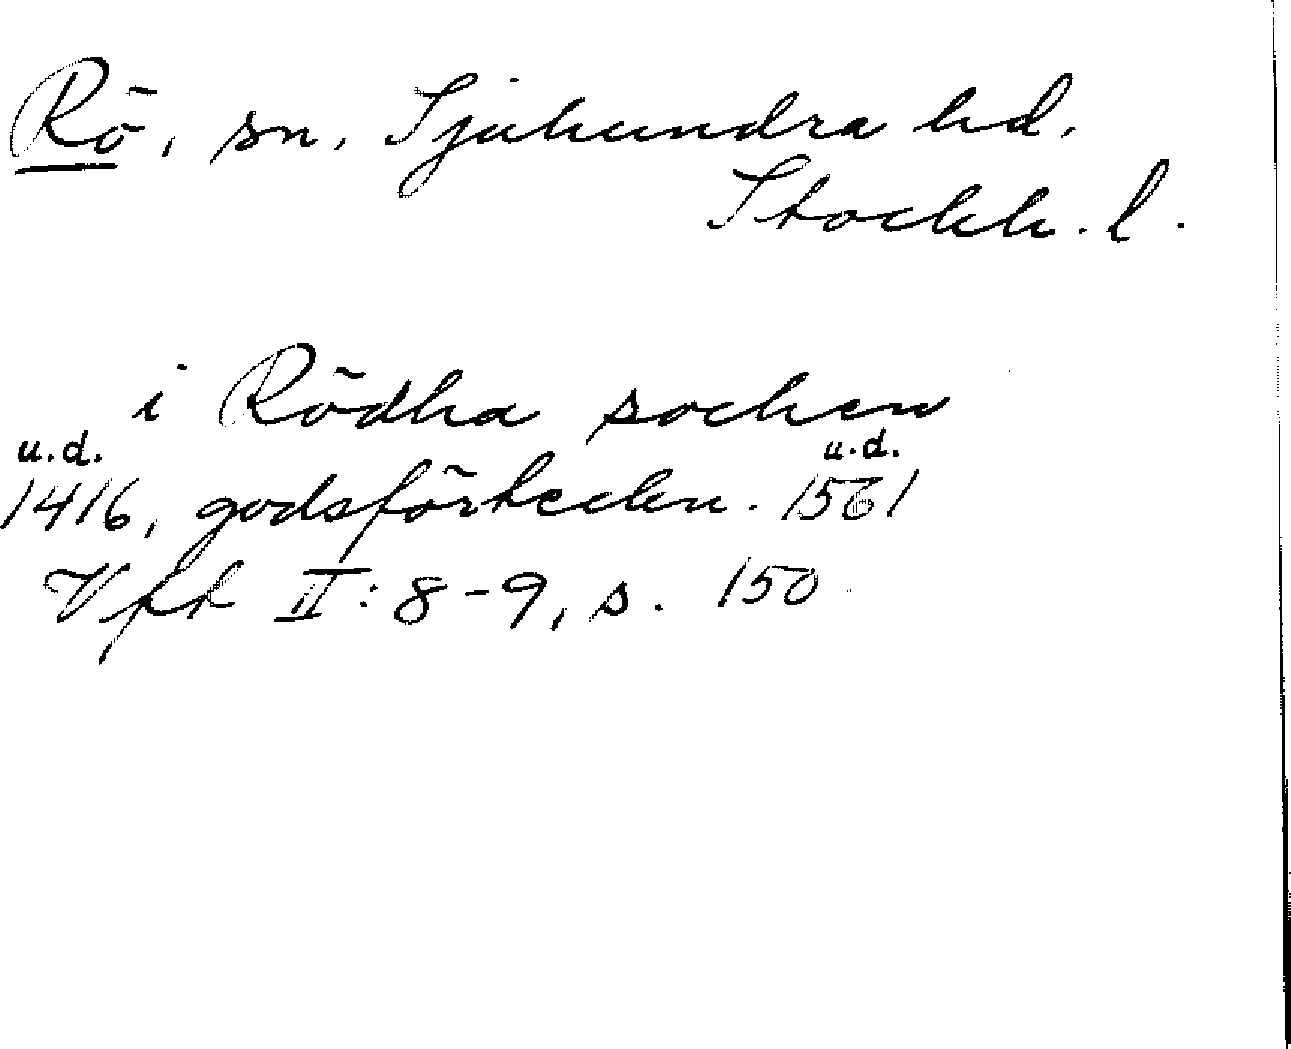 Rö, sn, Sjuhundra hd.
Stockh. l.
i Rödha sochen
u.d. u.d.
1416, godsförteckn. 1561
Vfk II: 8-9, s. 150